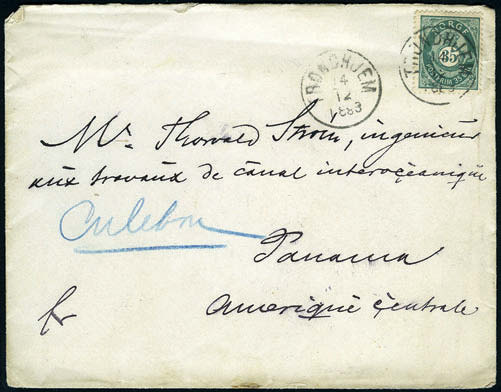 NORGE
35
TRONDHJEM
TRONDHJEM
4
12
1883
Mr Thorvald Strom, ingenieur
aux travaux de canal interocéanique
Culebra
Panama
fr
Amerique centrale